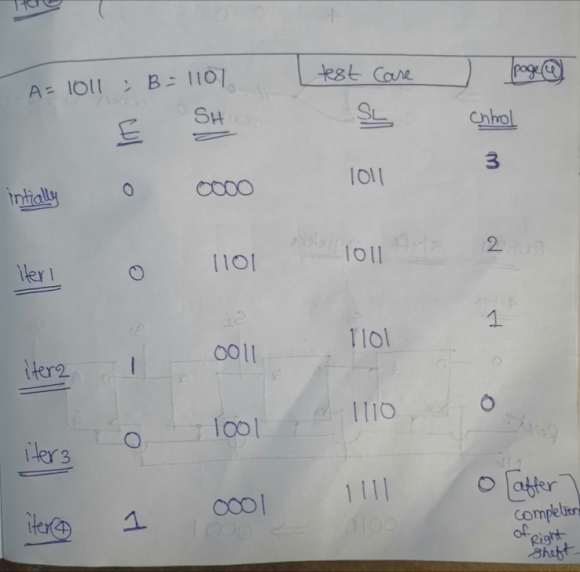 A = 1011 ; B = 1101 test Case page 4
E SH SL Cntrol
intially 0 0000 1011 3
iter1 0 1101 1011 2
iter2 1 0011 1101 1
iter3 0 1001 1110 0
iter 4 1 0001 1111 0 [after
completion
of Right
sheft